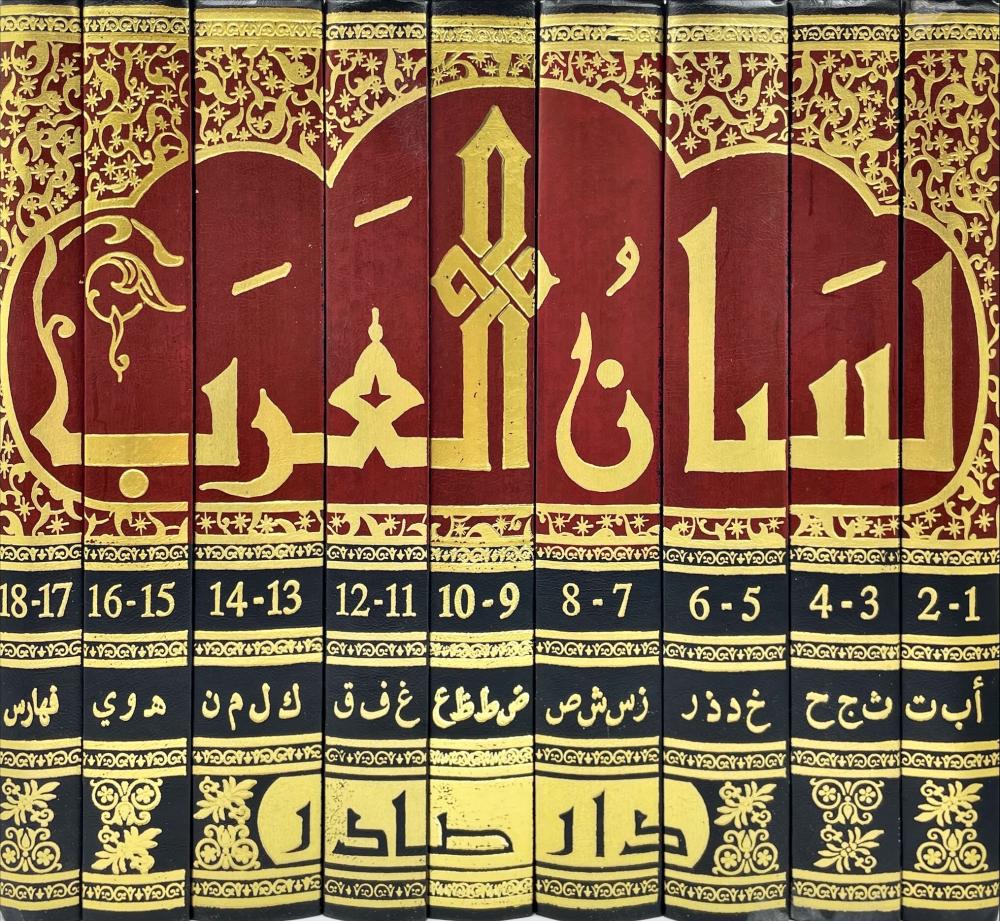 لسَانُ العَرَب
1-2 3-4 5-6 7-8 9-10 11-12 13-14 15-16 17-18
أ ب ت ث ج ح خ د ذ ر ز س ش ص ض ط ظ ع غ ف ق ك ل م ن ه و ي فهارس
دار صادر